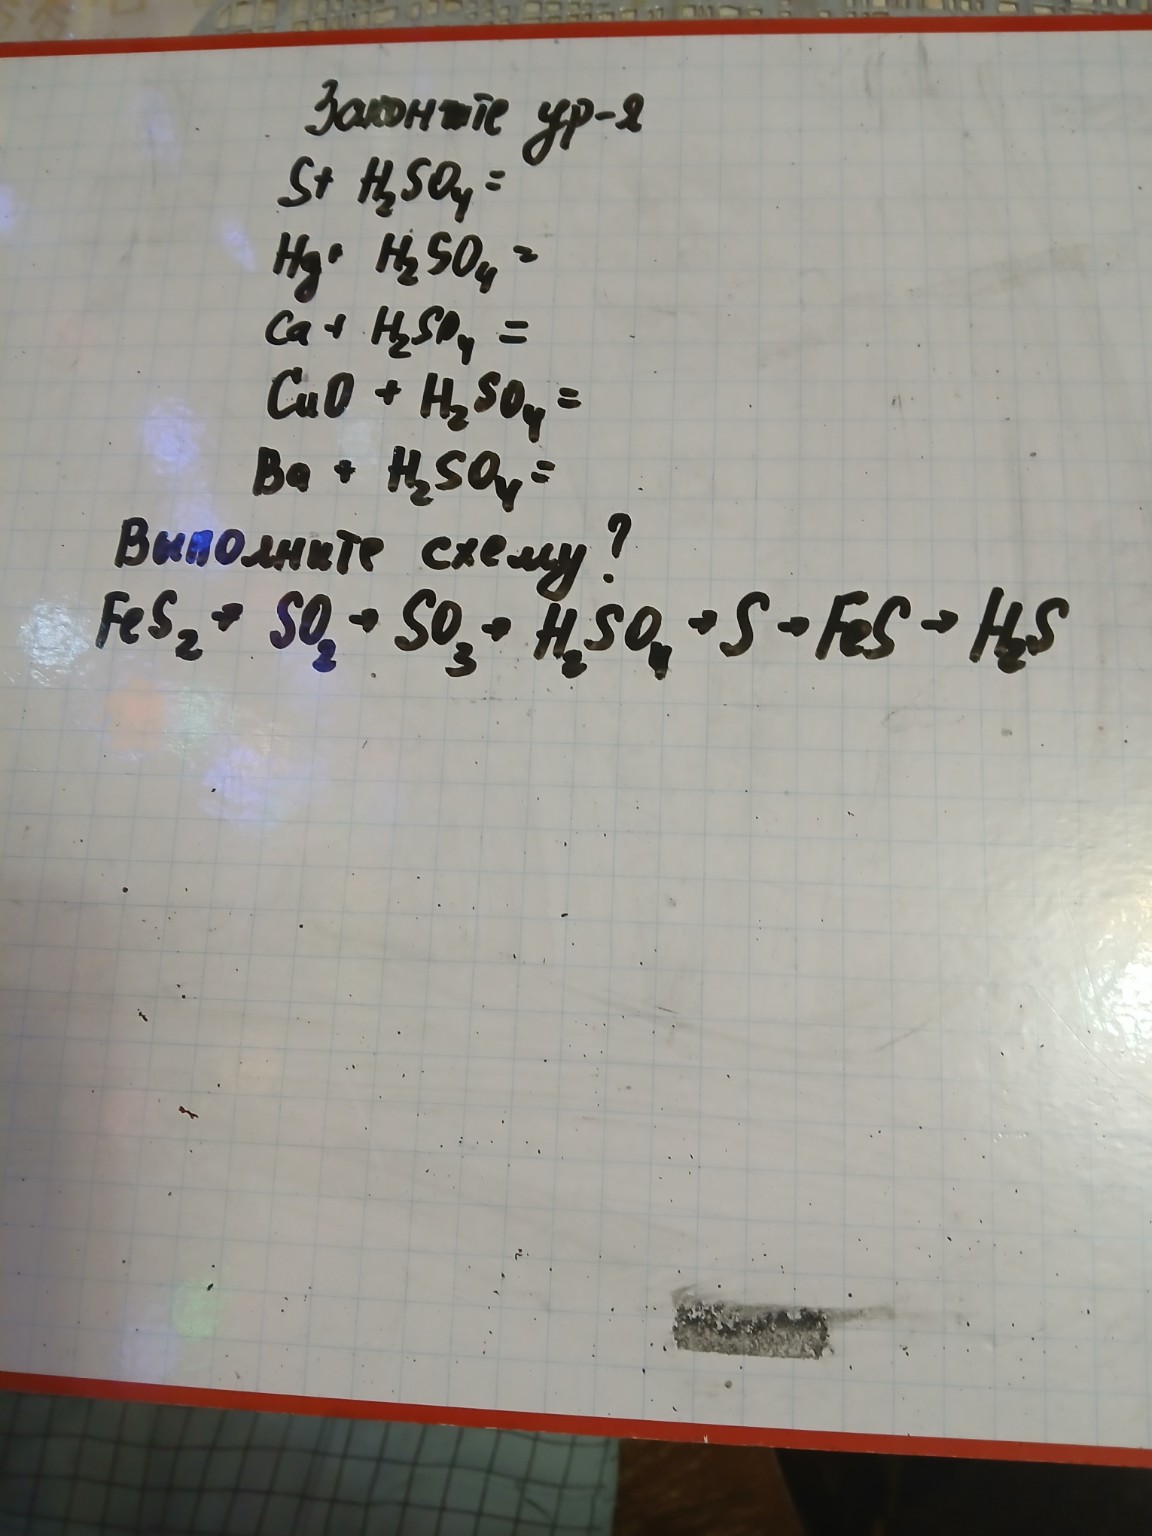 Закончите ур-я
S+ H₂SO₄=
Hg+ H₂SO₄=
Ca + H₂SO₄ =
CuO + H₂SO₄=
Ba + H₂SO₄=
Выполните схему?
FeS₂→ SO₂→ SO₃→ H₂SO₄→S→FeS→ H₂S